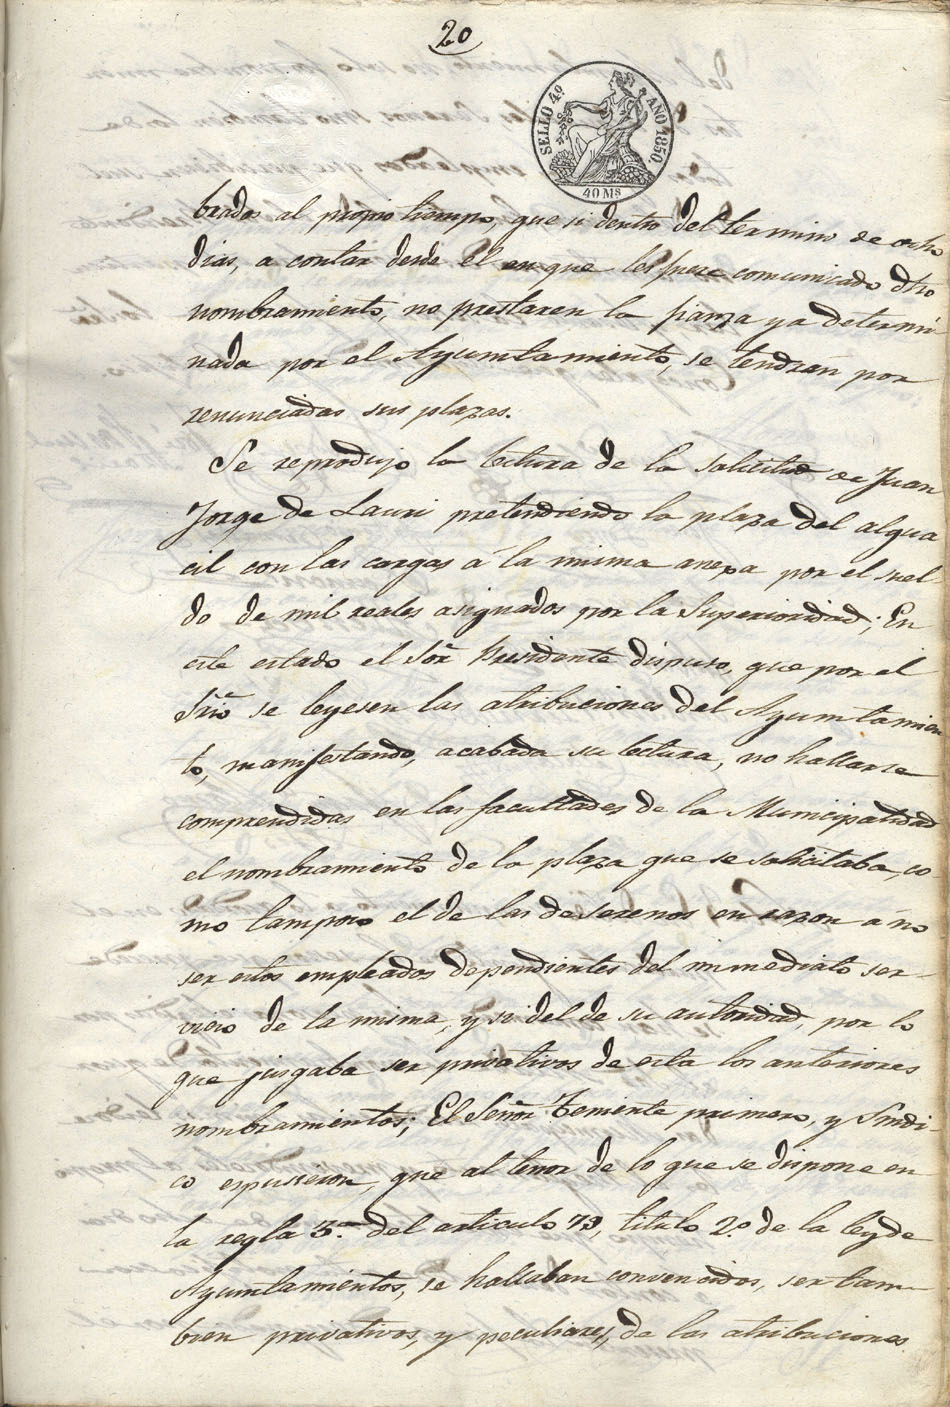 20
SELLO 4º AÑO 1850.
40 Ms
brados al propio tiempo, que si dentro del termino de ocho
dias, a contar desde el en que les fuere comunicado dho
nombramiento, no prestaren la fianza ya determi-
nada por el Ayuntamiento, se tendran por
renunciadas sus plazas.
Se reprodujo la lectura de la solicitud de Juan
Jorge de Lauri pretendiendo la plaza del algua
cil con las cargas á la misma anexa por el suel-
do de mil reales asignados por la Superioridad; En
este estado el Sor. Presidente dispuso, que por el
Srio se leyesen las atribuciones del Ayuntamien
to, manifestando, acabada su lectura, no hallarse
comprendidas en las facultades de la Municipalidad
el nombramiento de la plaza que se solicitaba, co-
mo tampoco el de las de Serenos en razon á no
ser estos empleados dependientes del inmediato ser-
vicio de la misma, y si del de su autoridad, por lo
que jusgaba ser privativos de esta los anteriores
nombramientos; El Señor Teniente primero, y Sindi-
co expusieron, que al tenor de lo que se dispone en
la regla 3.ª del articulo 73, titulo 2.º de la ley de
Ayuntamientos, se hallaban convencidos, ser tam-
bien privativos, y peculiares, de las atribuciones